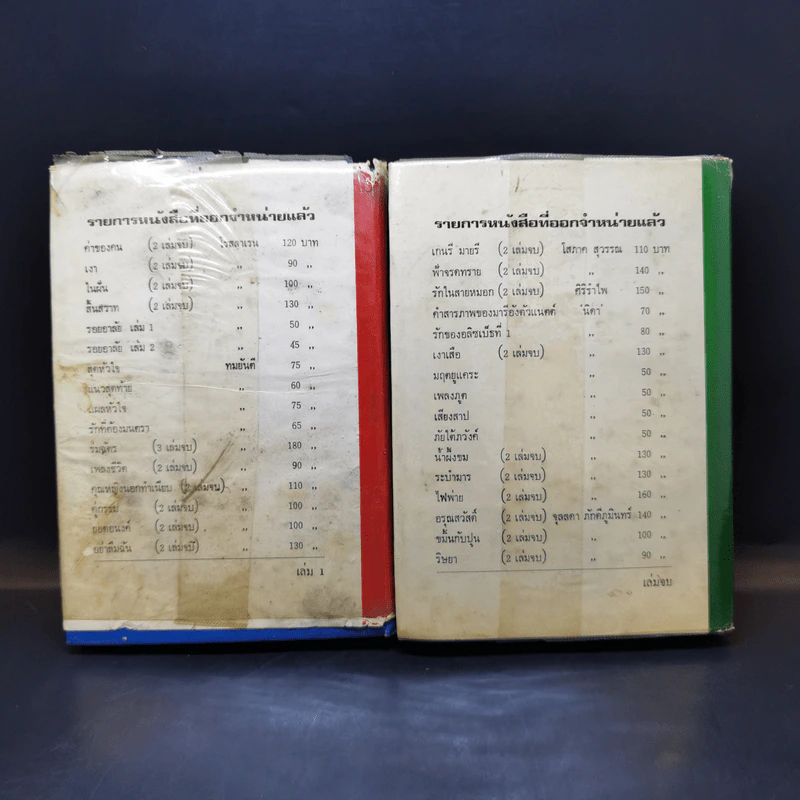 รายการหนังสือที่ออกจำหน่ายแล้ว
ค่าของคน (2 เล่มจบ) โรสลาเรน 120 บาท
เงา (2 เล่มจบ) ,, 90 ,,
ใบมีด (2 เล่มจบ) ,, 100 ,,
สิ้นสวาท (2 เล่มจบ) ,, 130 ,,
รอยอาลัย เล่ม 1 ,, 50 ,,
รอยอาลัย เล่ม 2 ,, 45 ,,
สุดหัวใจ ทมยันตี 75 ,,
แนวสุดท้าย ,, 60 ,,
แผลหัวใจ ,, 75 ,,
รักที่ต้องมนตรา ,, 65 ,,
ร่มฉัตร (3 เล่มจบ) ,, 180 ,,
เพลงชีวิต (2 เล่มจบ) ,, 90 ,,
คุณหญิงนอกทำเนียบ (2 เล่มจบ) ,, 110 ,,
คู่กรรม (2 เล่มจบ) ,, 100 ,,
ยอดอนงค์ (2 เล่มจบ) ,, 100 ,,
อย่าลืมฉัน (2 เล่มจบ) ,, 130 ,,
เล่ม 1
รายการหนังสือที่ออกจำหน่ายแล้ว
เกนรี มายรี (2 เล่มจบ) โสภาค สุวรรณ 110 บาท
ฟ้าจรดทราย (2 เล่มจบ) ,, 140 ,,
รักในสายหมอก (2 เล่มจบ) ศิริรำไพ 150 ,,
คำสารภาพของมารีอังตัวแนตต์ 'นิดา' 70 ,,
รักของอลิซเบ็ธที่ 1 ,, 80 ,,
เงาเสือ (2 เล่มจบ) ,, 130 ,,
มฤตยูแคระ ,, 50 ,,
เพลงภูต ,, 50 ,,
เสียงสาป ,, 50 ,,
ภัยใต้ภวังค์ ,, 50 ,,
น้ำผึ้งขม (2 เล่มจบ) ,, 130 ,,
ระบำมาร (2 เล่มจบ) ,, 130 ,,
ไฟพ่าย (2 เล่มจบ) ,, 160 ,,
อรุณสวัสดิ์ (2 เล่มจบ) จุลลดา ภักดีภูมินทร์ 140 ,,
ขมิ้นกับปูน (2 เล่มจบ) ,, 100 ,,
ริษยา (2 เล่มจบ) ,, 90 ,,
เล่มจบ